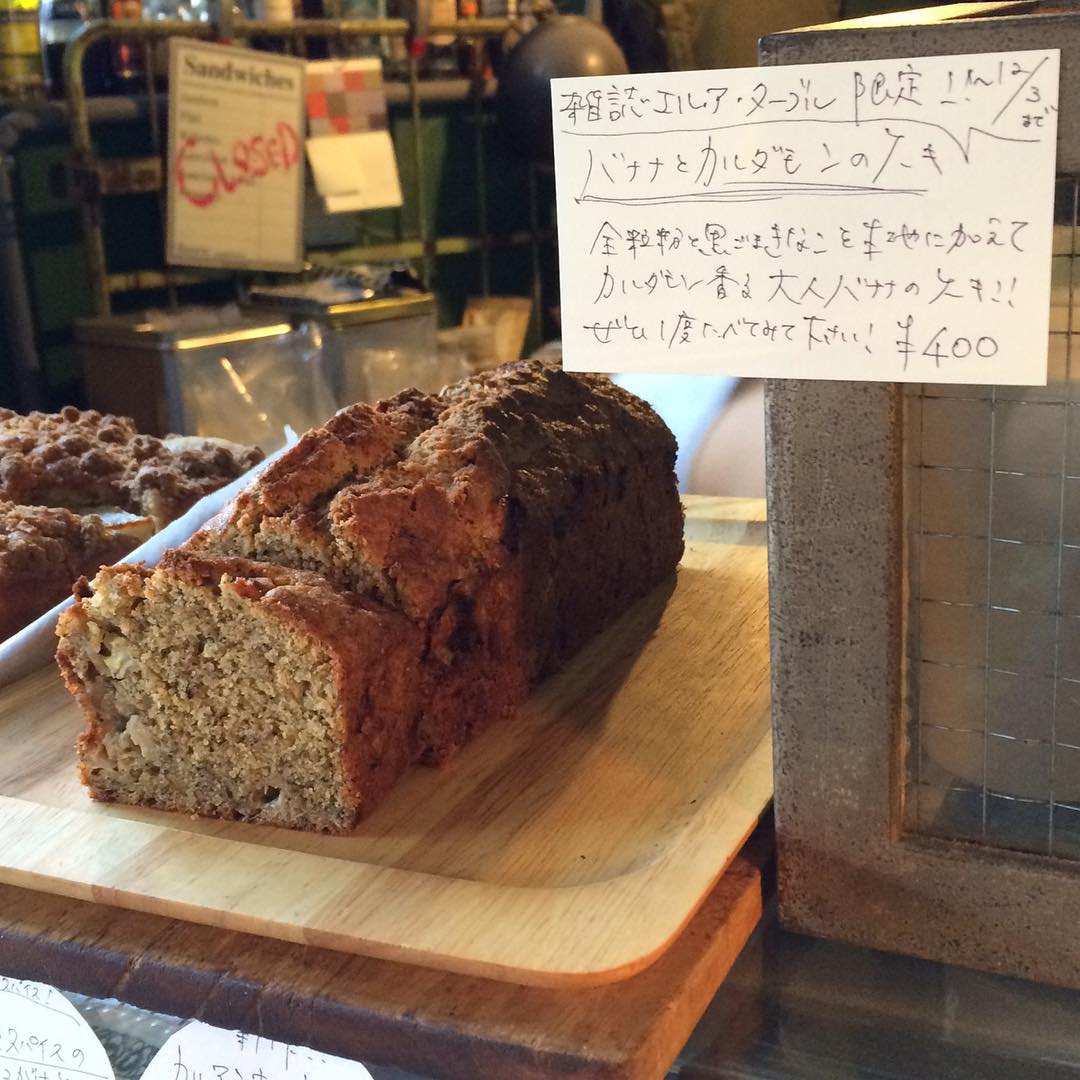 Sandwiches
CLOSED
雑誌エル・ア・ターブル 限定!!~12/3まで
バナナとカルダモンのケーキ
全粒粉と黒ごまきなこを生地に加えて
カルダモン香る大人バナナのケーキ!!
ぜひ1度たべてみて下さい! ¥400
スパイス!
スパイスの